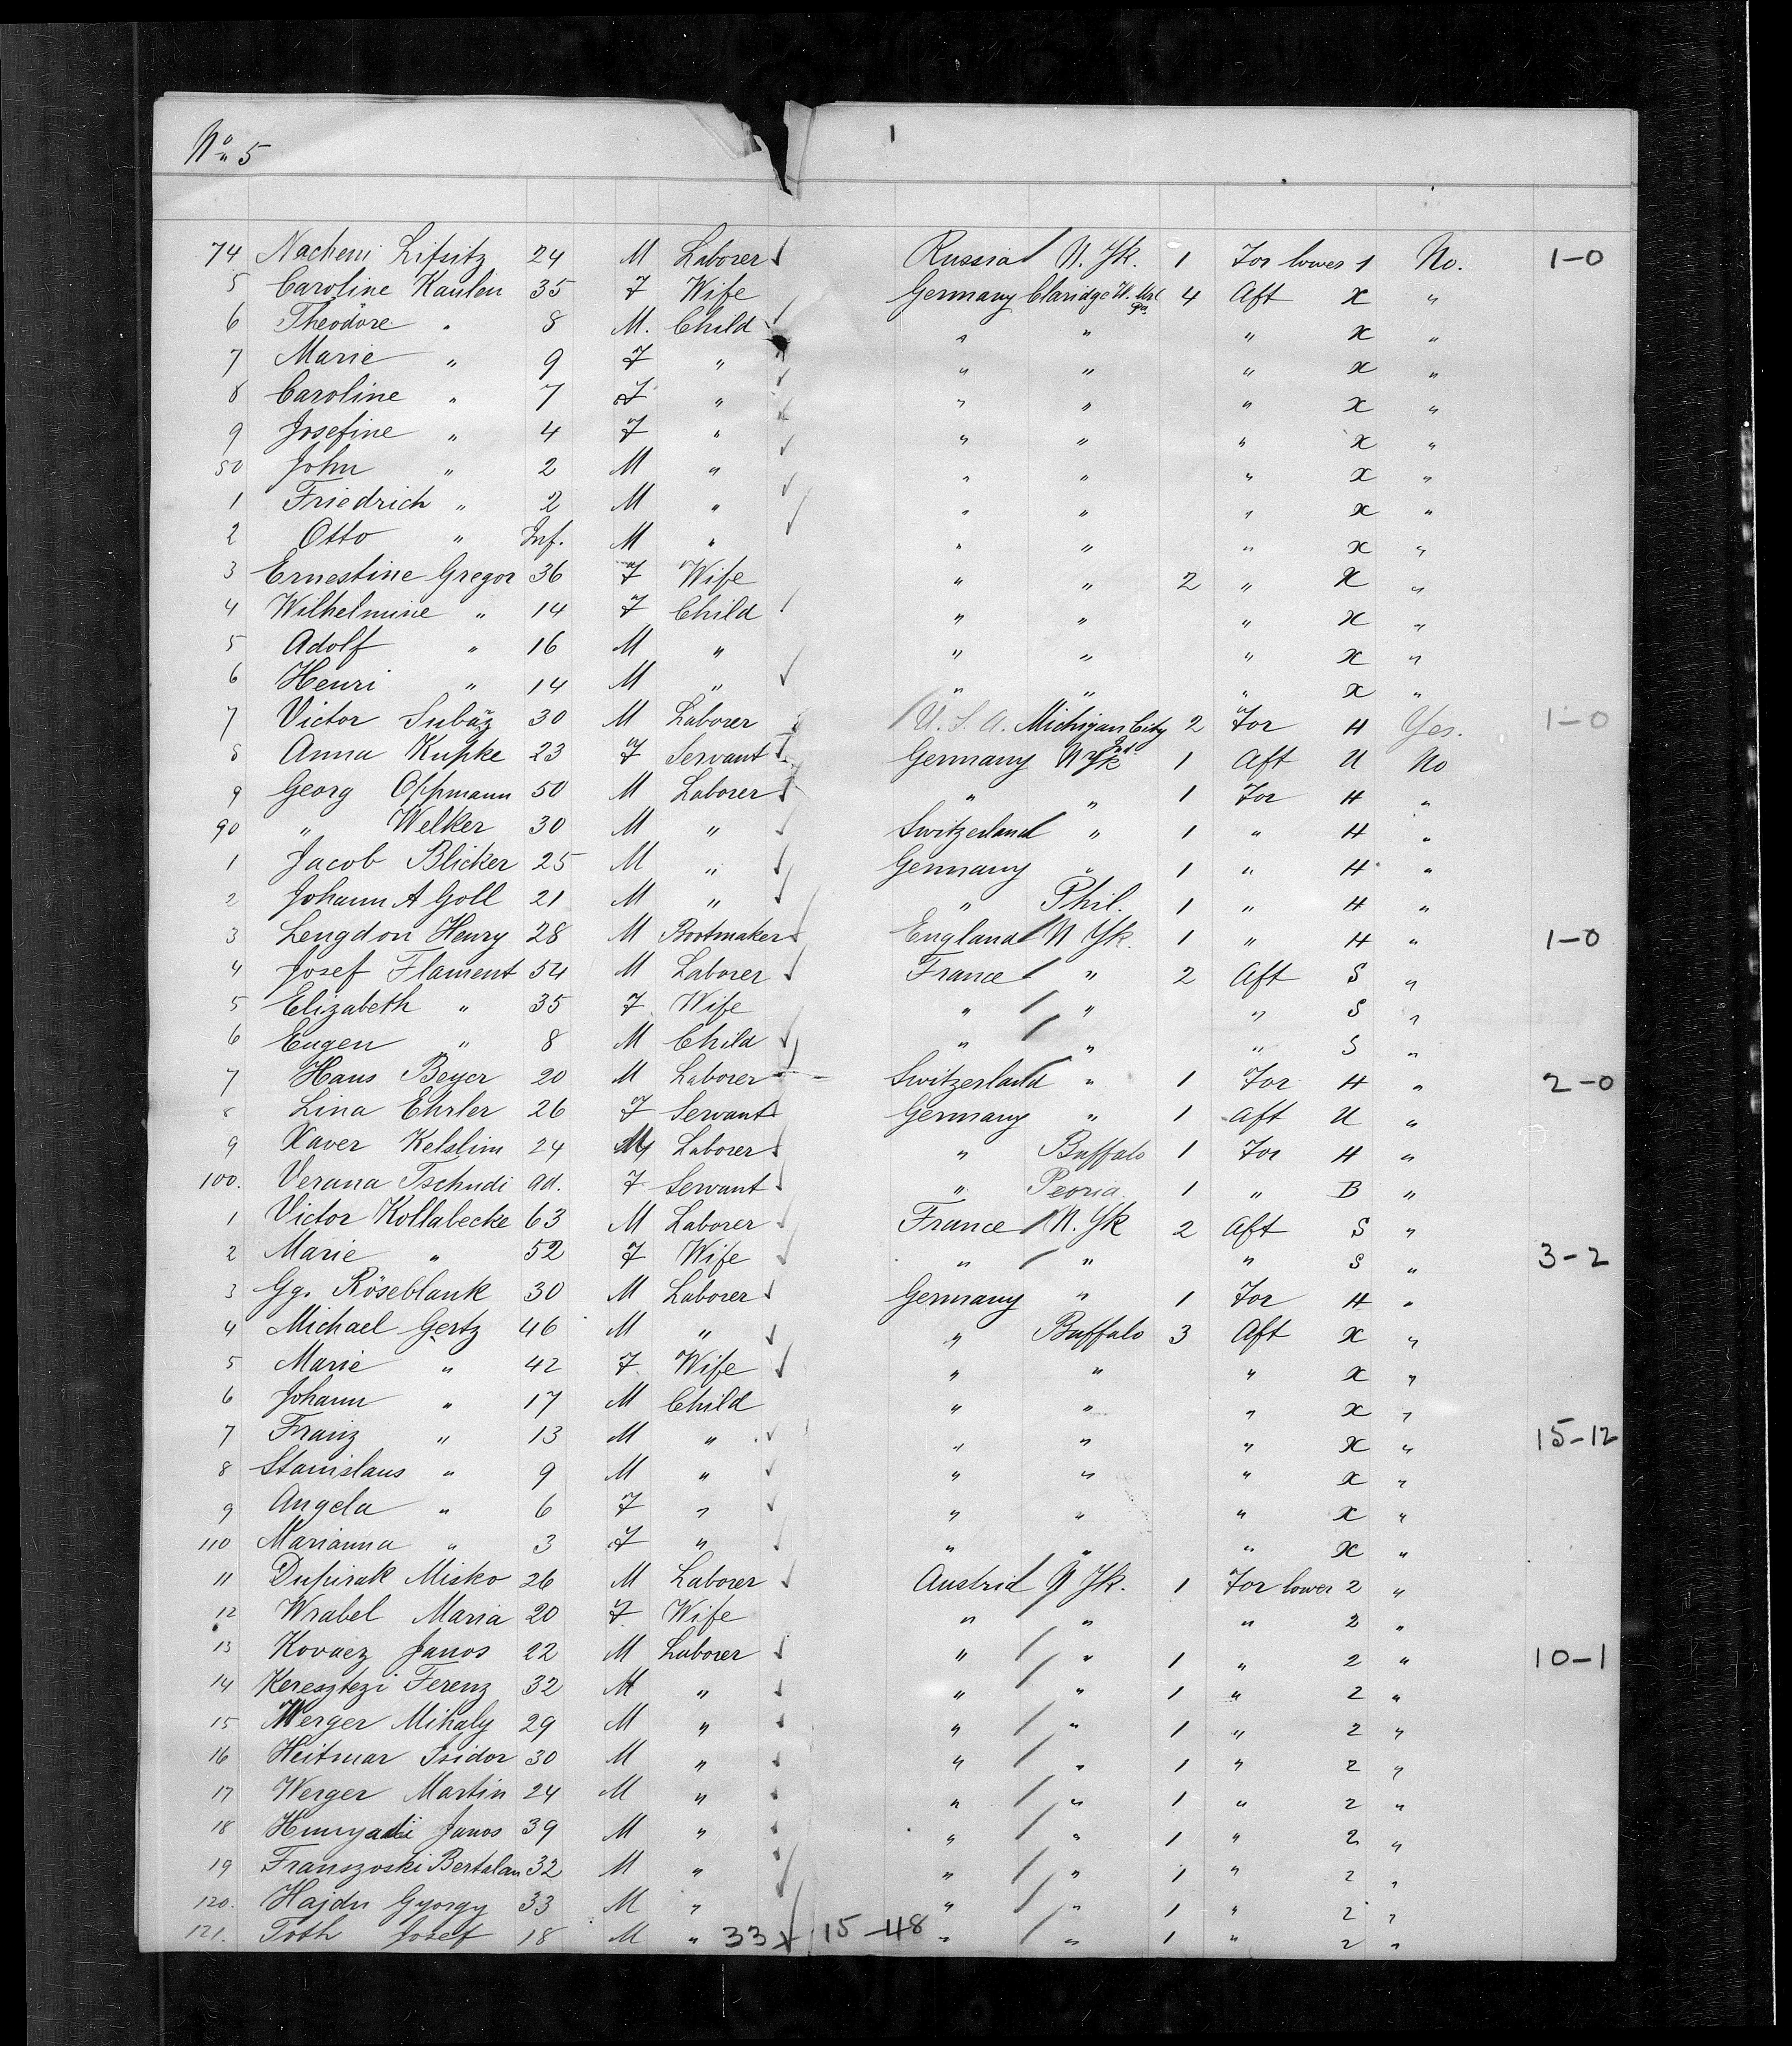 No 5
1
74 Nachem Lifsitz 24 M Laborer Russia N. Yk. 1 For lower 1 No. 1-0
5 Caroline Kaulen 35 F Wife Germany Claridge Pa 4 Aft X "
6 Theodore " 8 M. Child " " " X "
7 Marie " 9 F " " " " X "
8 Caroline " 7 F " " " " X "
9 Josefine " 4 F " " " " X "
50 John " 2 M " " " " X "
1 Friedrich " 2 M " " " " X "
2 Otto " Inf. M " " " " X "
3 Ernestine Gregor 36 F Wife " " 2 " X "
4 Wilhelmine " 14 F Child " " " X "
5 Adolf " 16 M " " " " X "
6 Henri " 14 M " " " " X "
7 Victor 30 M Laborer U. S. A. Michigan City Ind 2 For H Yes. 1-0
8 Anna Kupke 23 F Servant Germany N Yk 1 Aft U No
9 Georg Oppmann 50 M Laborer " " 1 For H "
90 " Welker 30 M " Switzerland " 1 " H "
1 Jacob Blicker 25 M " Germany " 1 " H "
2 Johann A Goll 21 M " " Phil. 1 " H "
3 Lengdon Henry 28 M Bootmaker England N Yk. 1 " H " 1-0
4 Josef Flament 54 M Laborer France " 2 Aft S "
5 Elizabeth " 35 F Wife " " " S "
6 Eugen " 8 M Child " " " S "
7 Hans Beyer 20 M Laborer Switzerland " 1 For H " 2-0
8 Lina Ehrler 26 F Servant Germany " 1 Aft U "
9 Xaver Kelslim 24 M Laborer " Buffalo 1 For H "
100. Verana Tschudi ad. F Servant " Peoria 1 " B "
1 Victor Kollabecke 63 M Laborer France N. Yk 2 Aft S "
2 Marie " 52 F Wife " " " S " 3-2
3 Gg. Röseblank 30 M Laborer Germany " 1 For H "
4 Michael Gertz 46 M " " Buffalo 3 Aft X "
5 Marie " 42 F Wife " " " X "
6 Johann " 17 M Child " " " X "
7 Franz " 13 M " " " " X " 15-12
8 Stanislaus " 9 M " " " " X "
9 Angela " 6 F " " " " X "
110 Marianna " 3 F " " " " X "
11 Dupirak Misko 26 M Laborer Austria N Yk. 1 For lower 2 "
12 Wrabel Maria 20 F Wife " " " 2 "
13 Kovacz Janos 22 M Laborer " " 1 " 2 " 10-1
14 Keresztezi Ferenz 32 M " " " 1 " 2 "
15 Werger Mihaly 29 M " " " 1 " 2 "
16 Heitmar Isidor 30 M " " " 1 " 2 "
17 Werger Martin 24 M " " " 1 " 2 "
18 Hunyadi Janos 39 M " " " 1 " 2 "
19 Franszoski Bertalan 32 M " " " 1 " 2 "
120. Hajdu Gyorgy 33 M " " " 1 " 2 "
121. Toth Josef 18 M " 33 15-48 " " 1 " 2 "